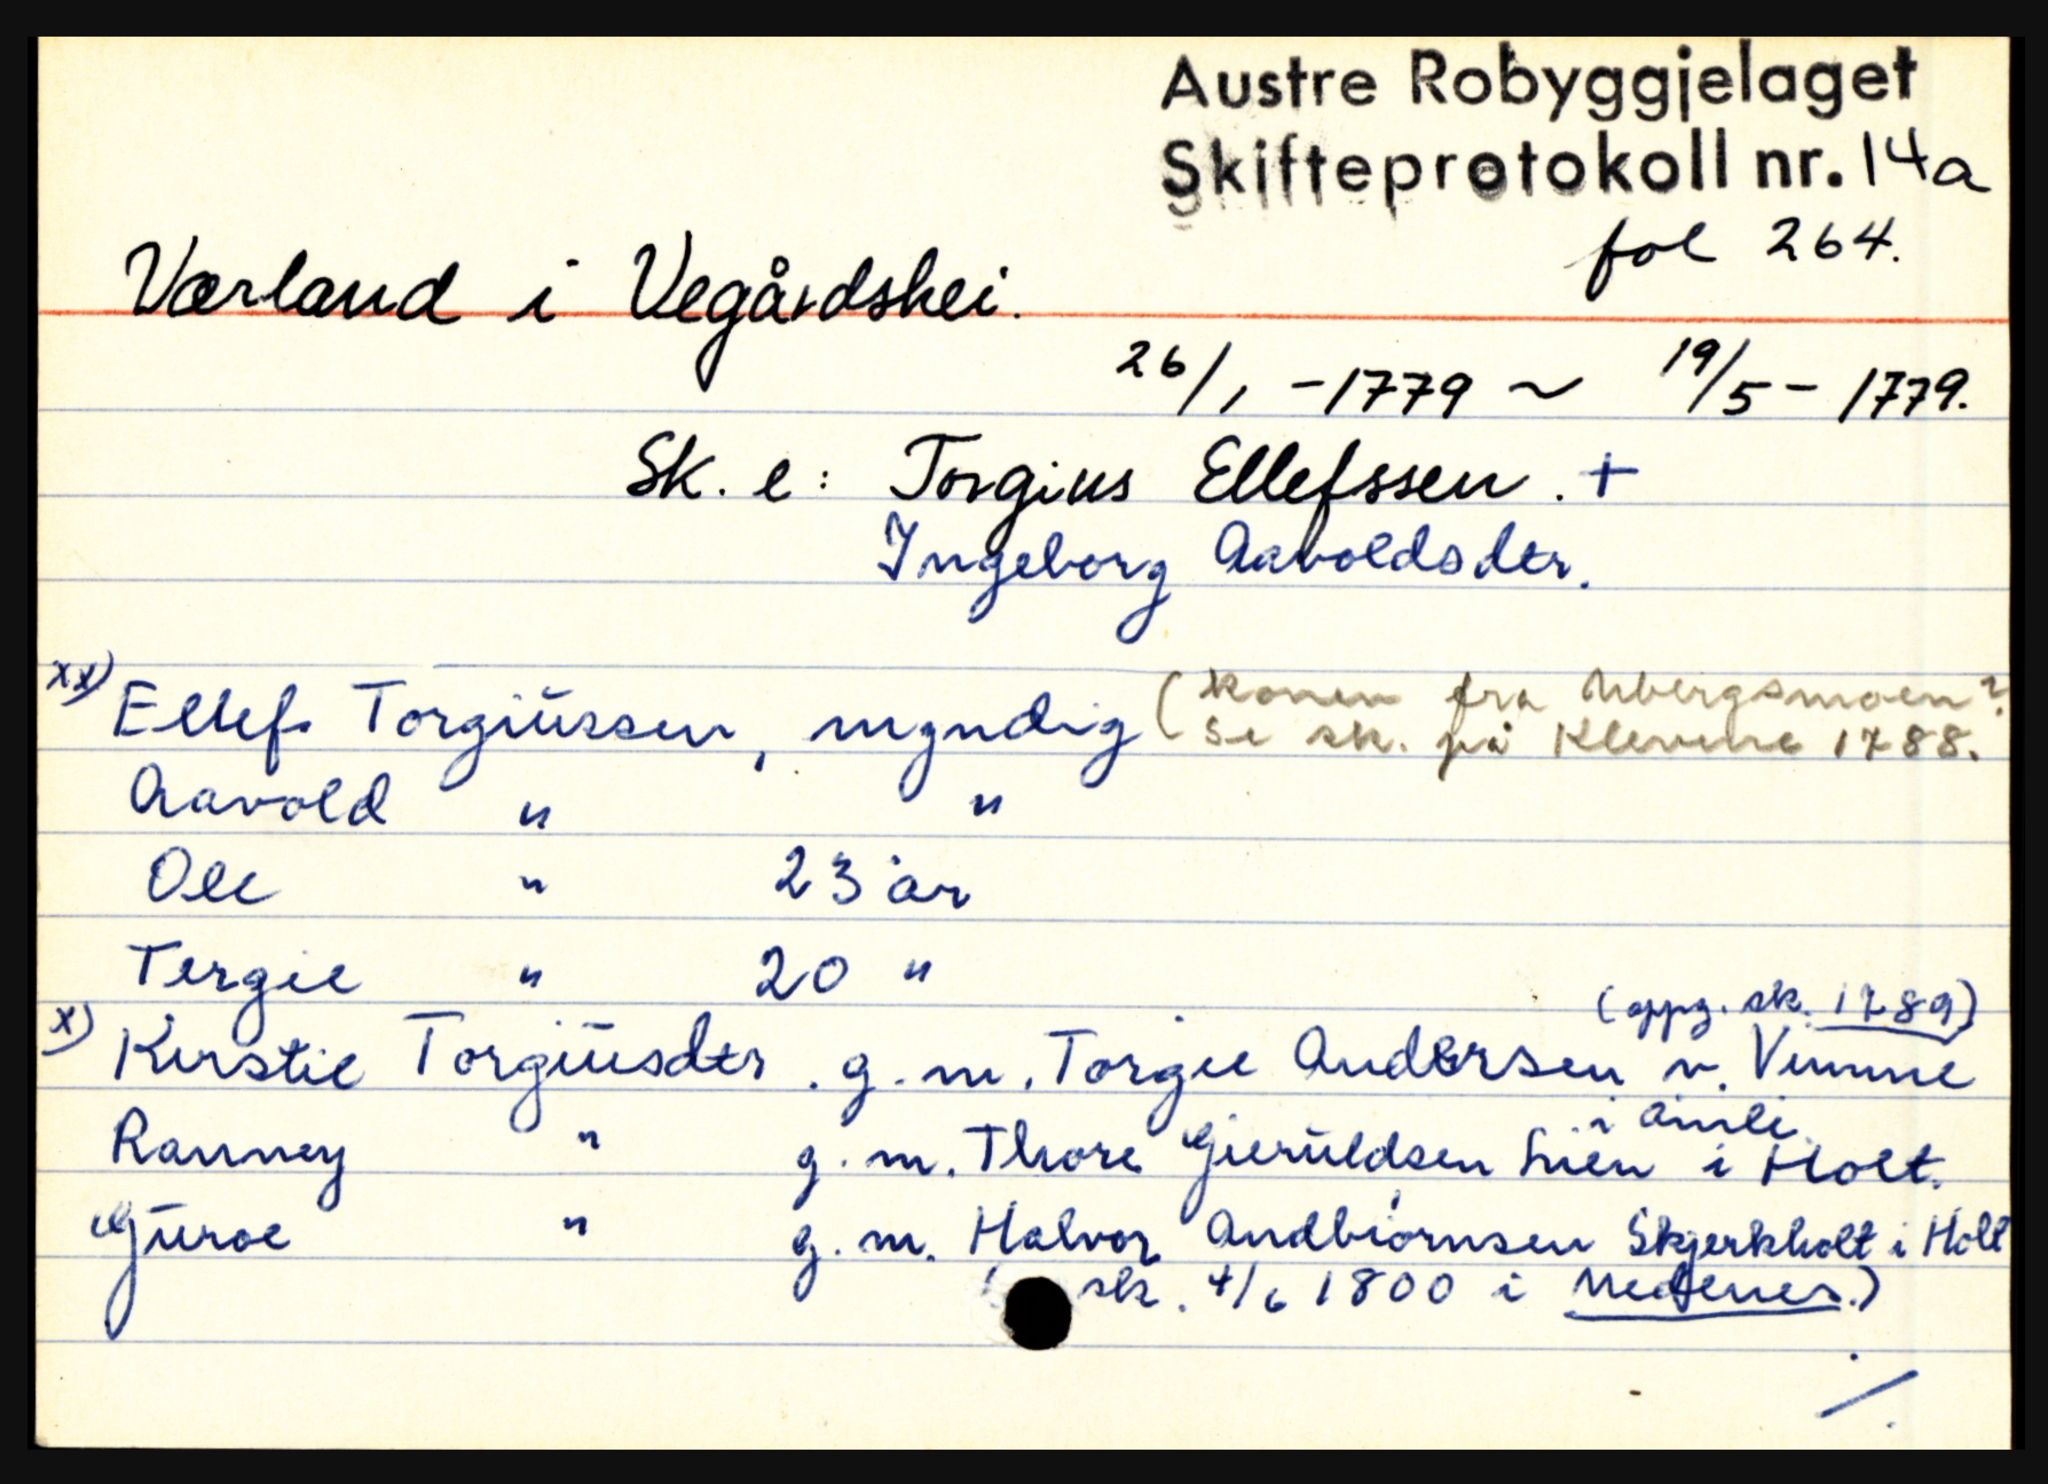 Austre Robyggjelaget
Skifteprotokoll nr. 14a
fol 264.
Værland i Vegårdshei.
26/1 - 1779 ~ 19/5 - 1779.
Sk. e: Torgius Ellefssen. +
Ingeborg Aavoldsdtr.
xx) Ellef Torgiussen, myndig (Konen fra Ubergsmoen?
Se sk. på Klevene 1788.
Aavold " "
Ole " 23 år
Tergie " 20 "
(oppg. sk. 1789)
x) Kirstie Torgiusdtr. g. m. Torgie Andersen v. Vimme
i Åmli.
Ranney " g. m. Thore Gieruldsen Lien i Holt.
Guroe " g. m. Halvor Andbiørnsen Skjerkholt i Holt
( sk. 4/6 1800 i Nedenes.)
/.